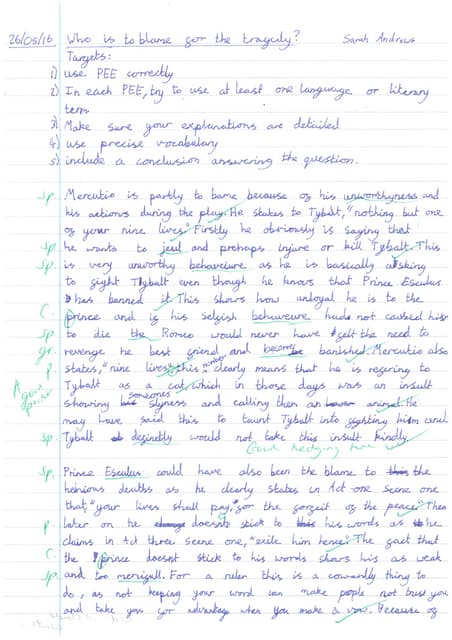 26/05/16 Who is to blame for the tragedy? Sarah Andrews
Targets:
1) use PEE correctly
2) In each PEE, try to use at least one language or literary
term
3) Make sure your explanations are detailed
4) use precise vocabulary
5) include a conclusion answering the question.
Sp. Mercutio is partly to bame because of his unworthyness and
his actions during the play. He states to Tybalt, "nothing but one
of your nine lives." Firstly he obviously is saying that
Sp. he wants to jeul and prehaps injure or kill Tybalt. This
Sp. is very unworthy behaveiure as he is basically asking
to fight Tybalt even though he knows that Prince Esculus
has banned it. This shows how unloyal he is to the
C. prince and if his selfish behaveure hade not caused him
Sp. to die the Romeo would never have felt the need to
gr. revenge he best friend and become banished. Mercutio also
p. states, "nine lives" this clearly means that he is refering to
A good point Tybalt as a cat, which in those days was an insult
showing someones slyness and calling them an animal. He
may have said this to taunt Tybalt into fighting him and
Sp. Tybalt definetly would not take this insult kindly.
Good hedging here
Sp. Prince Esculus could have also been the blame to the
heinious deaths as he clearly states in Act one scene one
that, "your lives shall pay, for the forfeit of the peace." Then
p. later on he doesnt stick to his words as he
claims in Act three scene one, "exile him hence." The fact that
C. the prince doesnt stick to his words shows his as weak
Sp. and too mercifull. For a ruler this is a cowardly thing to
do, as not keeping your word can make people not trust you
and take you for advantage when you make a vow. Because of